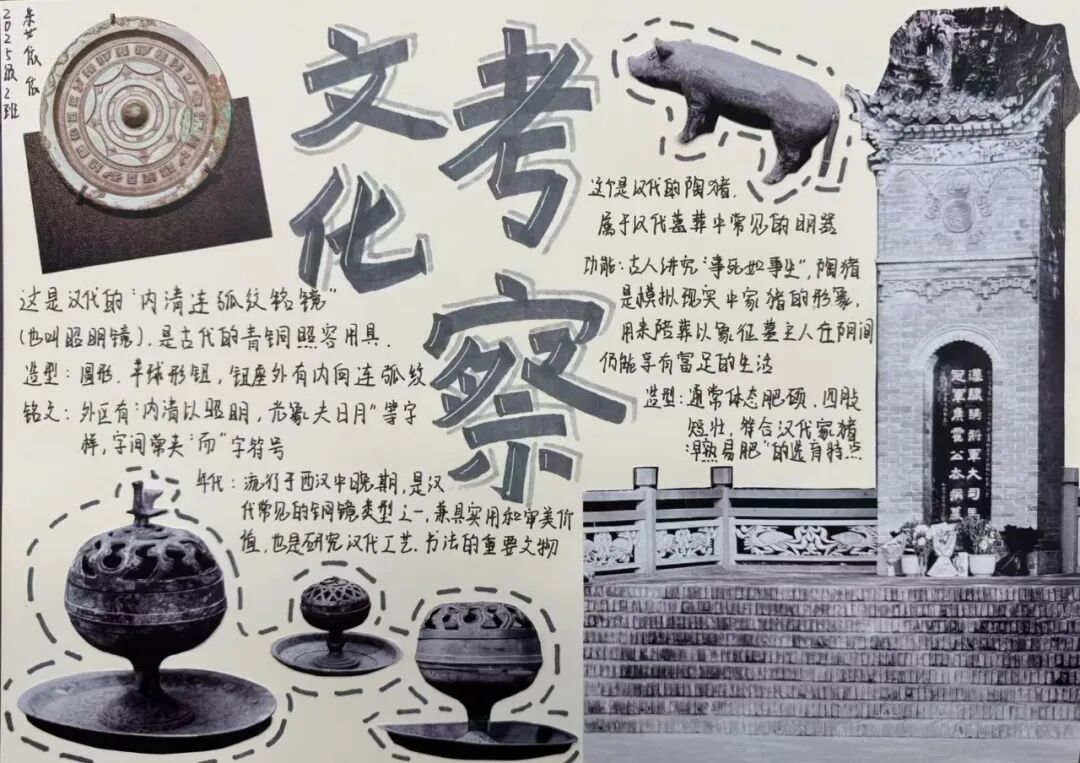 2025级2班
文化
考察
这是汉代的“内清连弧纹铭镜
(也叫昭明镜),是古代的青铜照容用具.
造型:圆形.半球形钮,钮座外有内向连弧纹
铭文:外区有“内清以昭明,光象夫日月”等字
样,字间常夹“而”字符号
年代:流行于西汉中晚期,是汉
代常见的铜镜类型之一,兼具实用和审美价
值,也是研究汉代工艺.书法的重要文物
这个是汉代的陶猪,
属于汉代墓葬中常见的明器
功能:古人讲究“事死如事生”,陶猪
是模拟现实中家猪的形象,
用来陪葬以象征墓主人在阴间
仍能享有富足的生活
造型:通常体态肥硕,四肢
短壮,符合汉代家猪
“早熟易肥”的选育特点
漢驃騎將軍大司馬
冠軍侯霍公去病墓